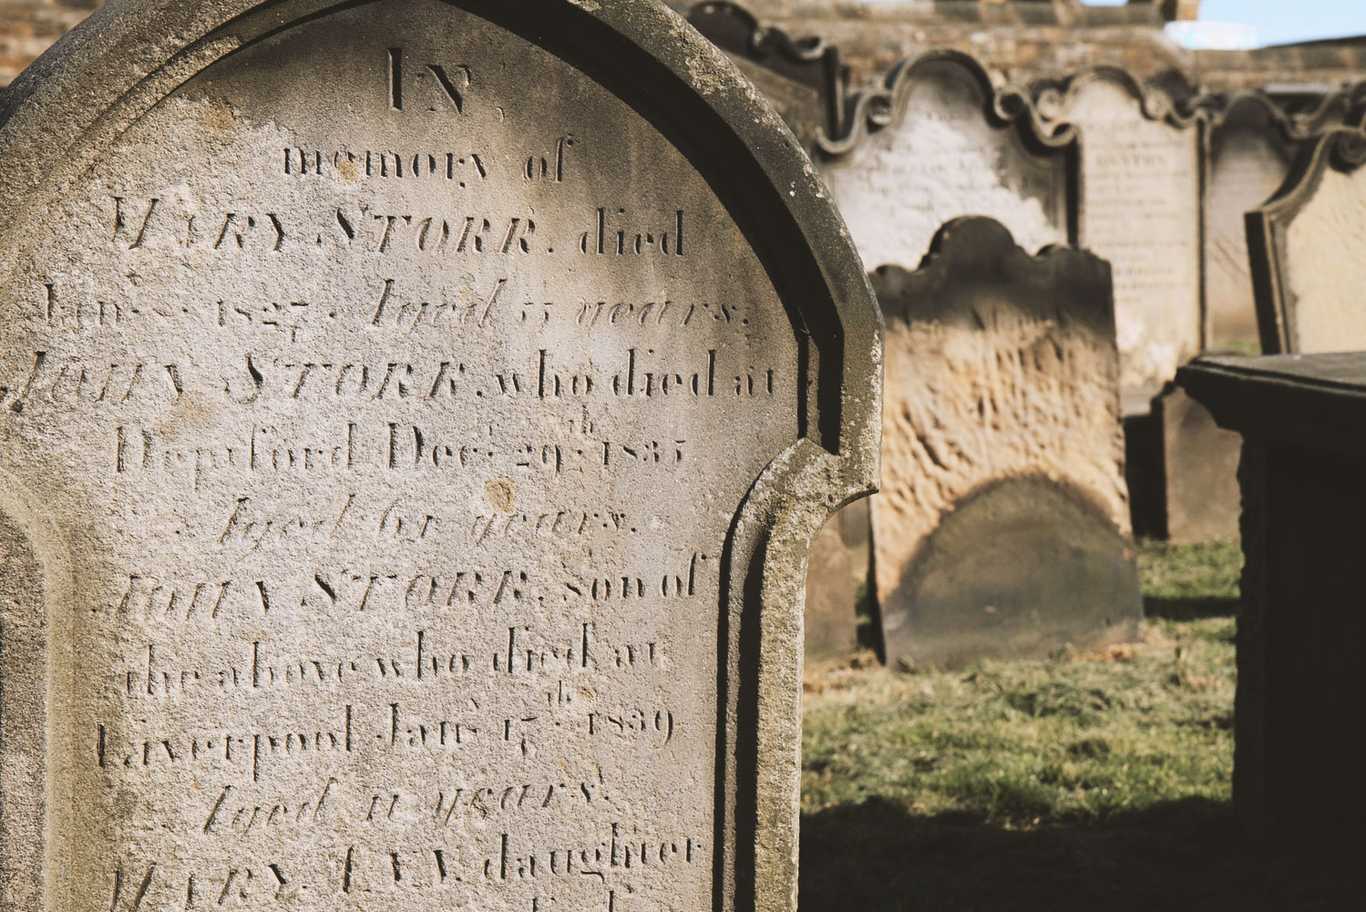 IN
memory of
MARY STORR. died
Jan 1827. Aged years.
JOHN STORR. who died at
Deptford Dec. 29th 1835
Aged 61 years.
JOHN STORR. son of
the above who died at
Liverpool Jan. 17th 1839
Aged 11 years.
MARY ANN. daughter